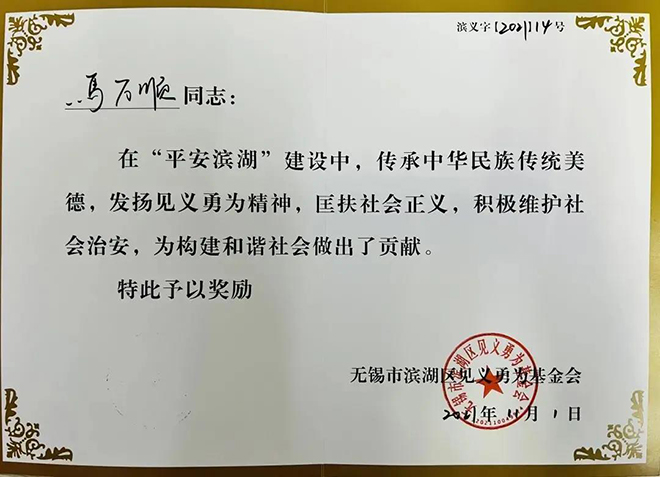 滨义字[2021]14号
馬万順同志：
在“平安滨湖”建设中，传承中华民族传统美
德，发扬见义勇为精神，匡扶社会正义，积极维护社
会治安，为构建和谐社会做出了贡献。
特此予以奖励
无锡市滨湖区见义勇为基金会
无锡市滨湖区见义勇为基金会
2021年11月1日